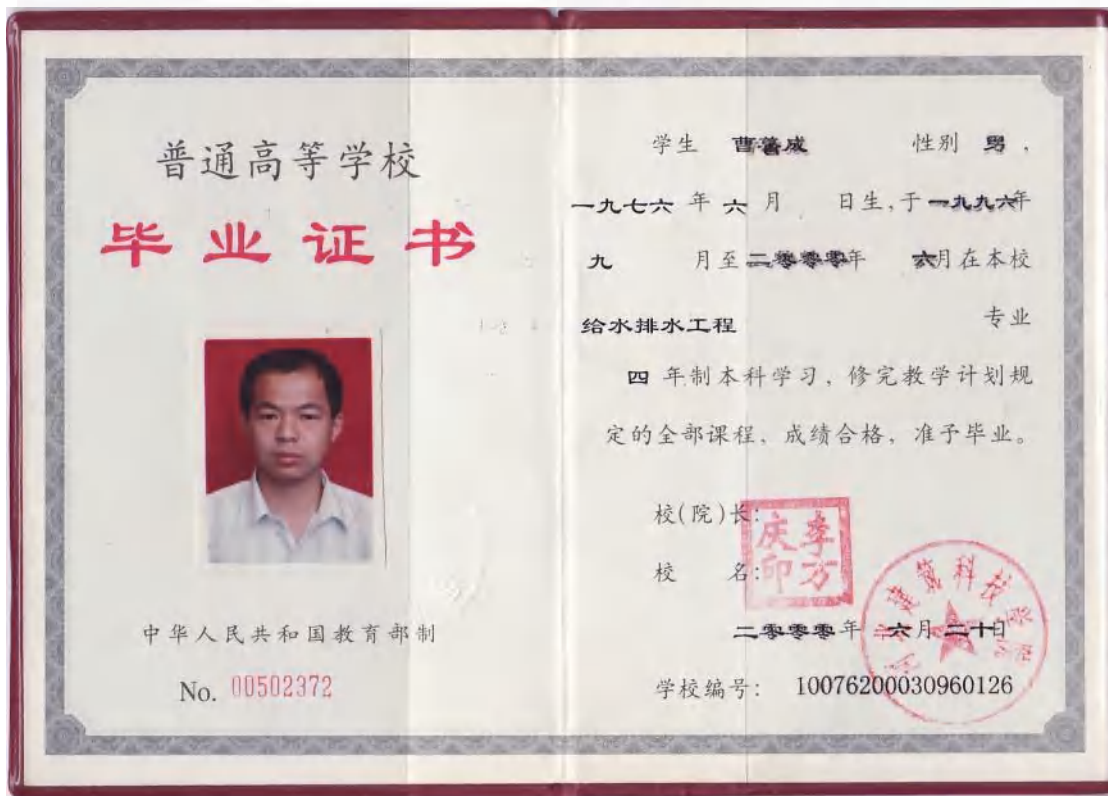 普通高等学校
毕业证书
中华人民共和国教育部制
No. 00502372
学生 曹善成 性别 男，
一九七六 年 六 月 日生，于一九九六年
九 月至二零零零年 六月在本校
给水排水工程 专业
四 年制本科学习，修完教学计划规
定的全部课程、成绩合格，准予毕业。
校(院)长：
李万庆印
校 名：
河北建筑科技学院
二零零零年 六月二十日
学校编号： 10076200030960126